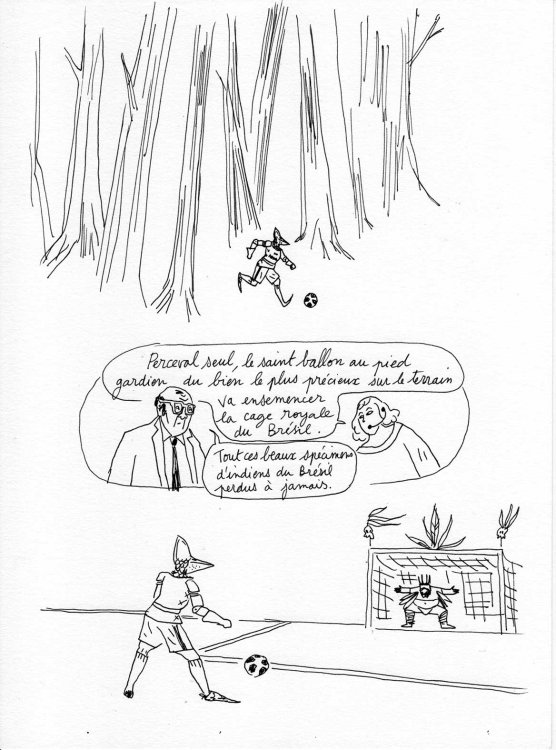 Perceval seul, le saint ballon au pied
gardien du bien le plus précieux sur le terrain
va ensemencer
la cage royale
du Brésil.
Tout ces beaux spécimens
d'indiens du Brésil
perdus à jamais.